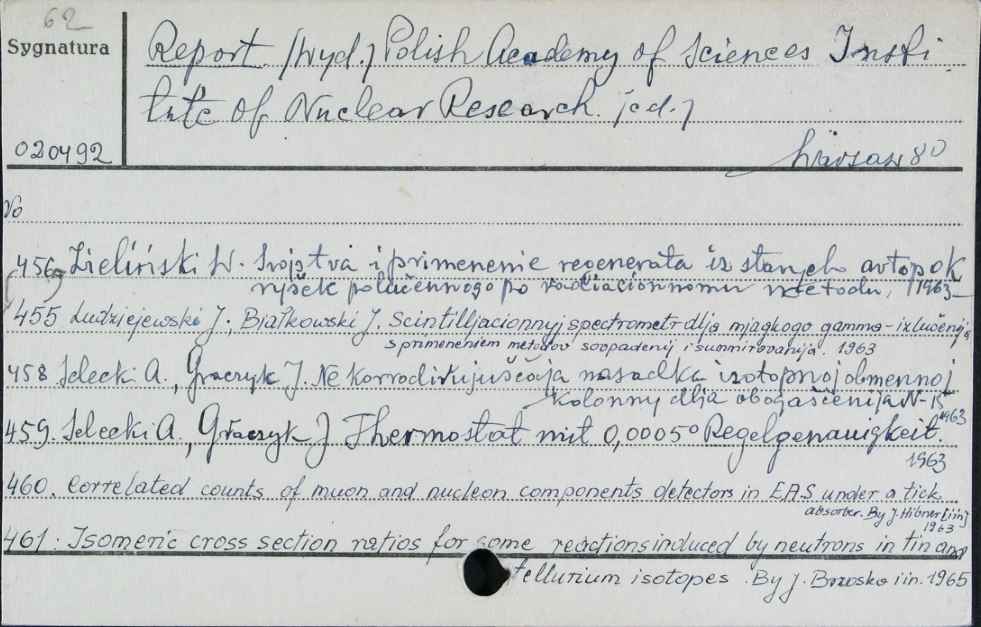 62
Sygnatura
020492
Report. /Wyd./ Polish Academy of Sciences Insti-
tute of Nuclear Research. /cd./
Warsaw 80
No
456 Zieliński W. Svojstva i primenenie regenerata iz staryh avtopok
ryšek polučennogo po radiacionnomu metodu, 1963
455 Ludziejewski J., Białkowski J. Scintilljacionnyj spectrometr dlja mjagkogo gamma-izlučenija
s primeneniem metodov sovpadenij i summirovanija. 1963
458 Selecki A., Graczyk J. Ne korrodirujuščaja nasadka izotopnoj obmennoj
kolonny dlja obogaščenija N-15
1963
459. Selecki A., Graczyk J. Thermostat mit 0,0005° Regelgenauigkeit.
1963
460. Correlated counts of muon and nucleon components detectors in EAS under a tick
absorber. By J. Hibner [iin]
1963
461. Isomeric cross section ratios for some reactions induced by neutrons in tin and
tellurium isotopes. By J. Brzosko iin. 1965